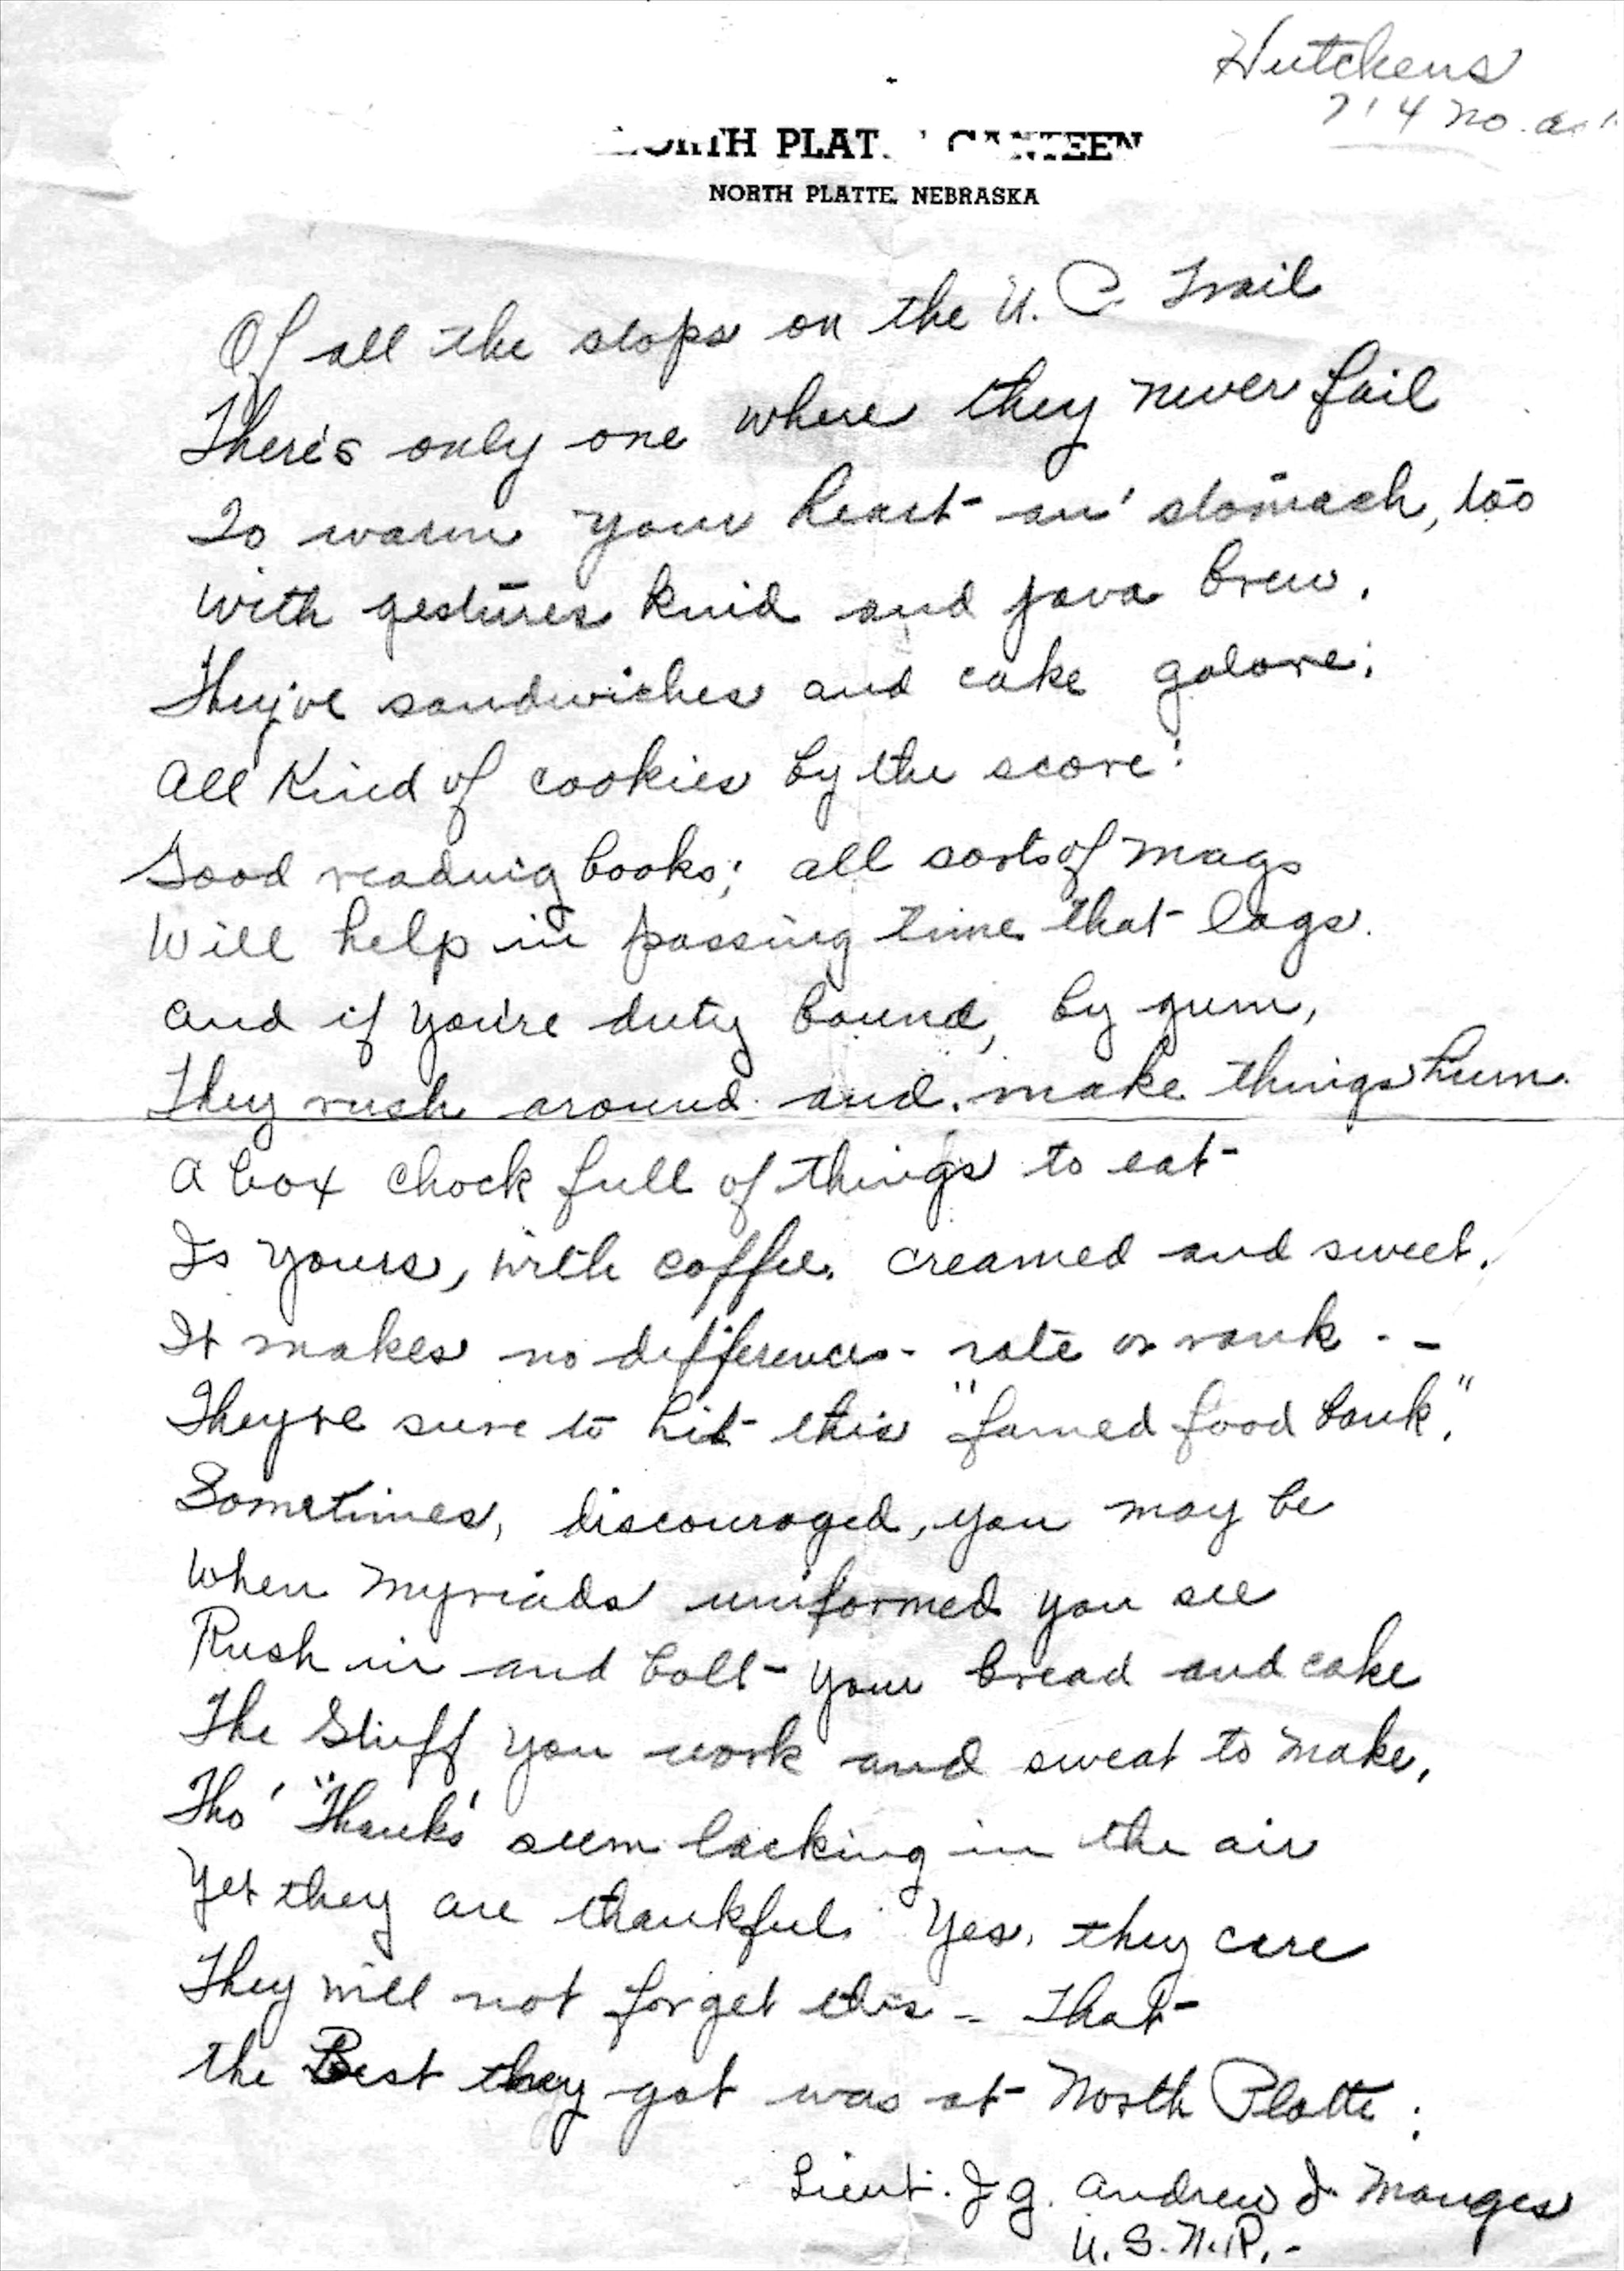 Hutchens
714 no.
NORTH PLATTE CANTEEN
NORTH PLATTE, NEBRASKA
Of all the stops on the U. P. Trail
There's only one where they never fail
To warm your heart an' stomach, too
With gestures kind and java brew.
They've sandwiches and cake galore;
All kind of cookies by the score;
Good reading books; all sorts of mags
Will help in passing time that lags.
And if you're duty bound, by gum,
They rush around and make things hum.
A box chock full of things to eat
Is yours, with coffee, creamed and sweet.
It makes no difference - rate or rank - -
They're sure to hit this "famed food bank."
Sometimes, discouraged, you may be
When myriads uniformed you see
Rush in and bolt your bread and cake
The stuff you work and sweat to make,
Tho' "Thanks' seem lacking in the air
Yet they are thankful. Yes, they care
They will not forget this - That
the Best they got was at North Platte.
Lieut. J g. Andrew J. Manges
U. S. N. R. -